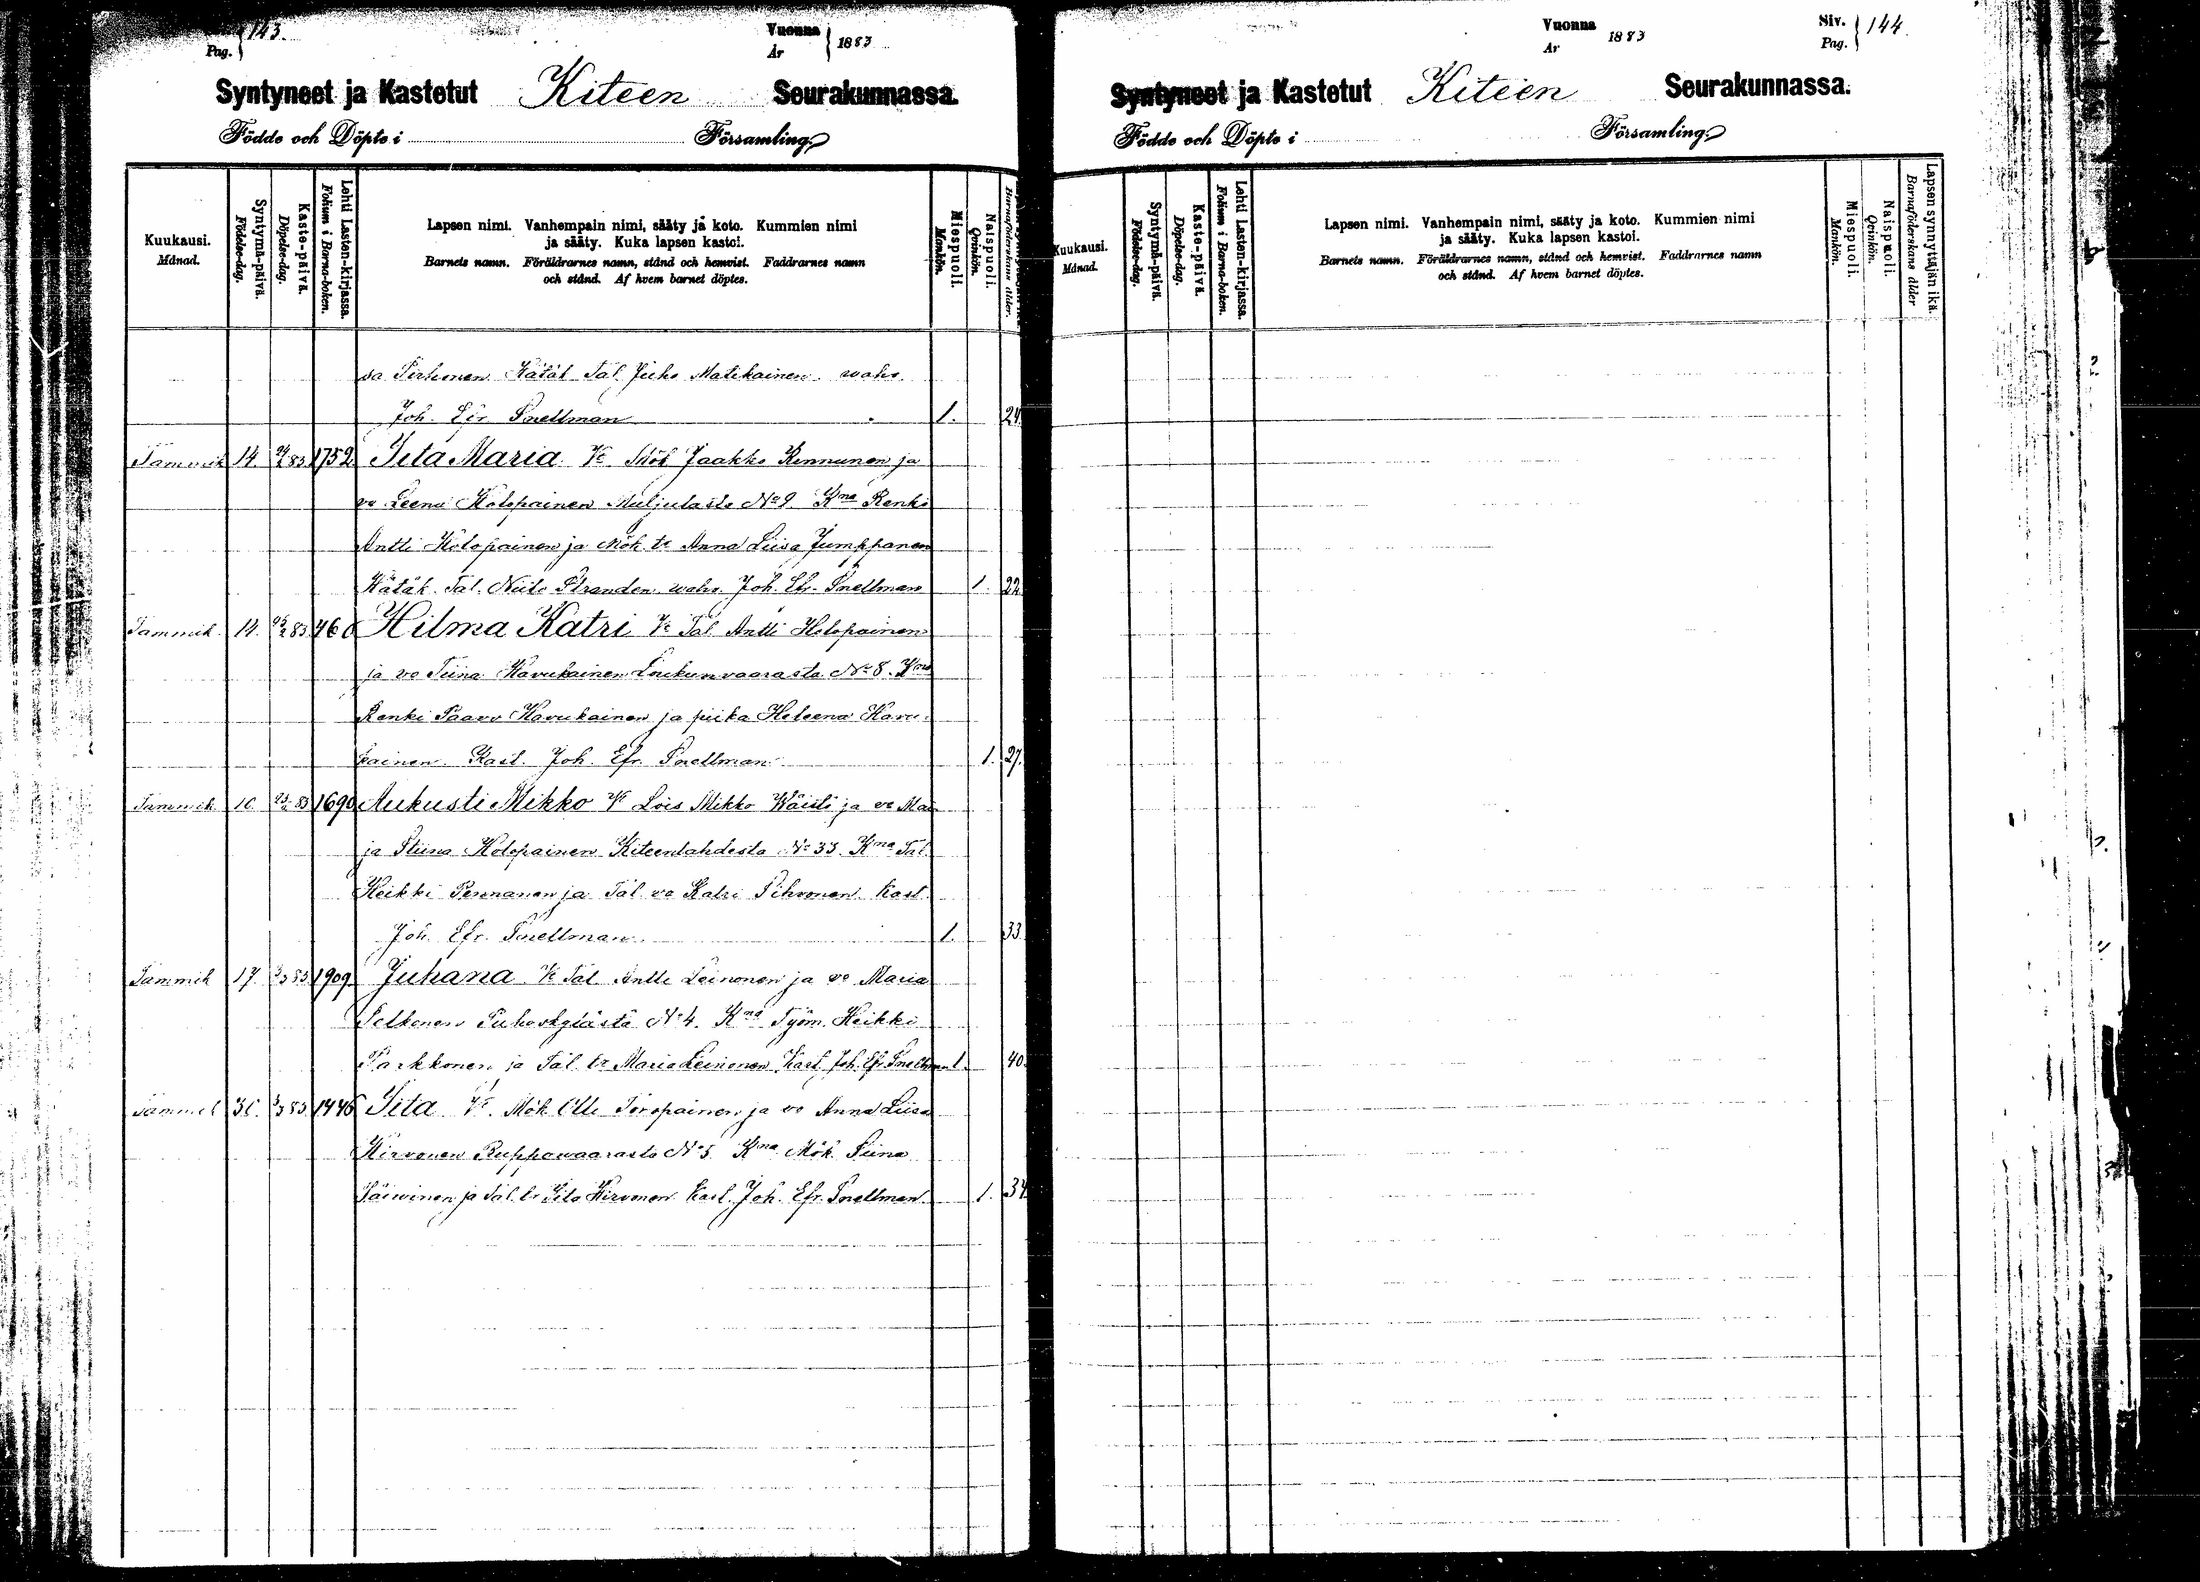 Pag. 143.
Vuonna
År 1883
Syntyneet ja Kastetut Kiteen Seurakunnassa.
Födde och Döpte i Församling
Kuukausi.
Månad.
Syntymä-päivä.
Födelse-dag.
Kaste-päivä.
Döpelse-dag.
Lehti Lasten-kirjassa.
Folium i Barna-boken.
Lapsen nimi. Vanhempain nimi, sääty ja koto. Kummien nimi
ja sääty. Kuka lapsen kastoi.
Barnets namn. Föräldrarnes namn, stånd och hemvist. Faddrarnes namn
och stånd. Af hvem barnet döptes.
Miespuoli.
Mankön.
Naispuoli.
Qvinkön.
Barnaföderskans ålder.
sa Pirhonen Hätäk Tal. Juho Matikainen wahv.
Joh. Efr. Snellman 1. 24
Tammik 14. 83 1752 Iita Maria. Vt Mök Jaakko Kinnunen ja
vo Leena Holopainen Muljulasta No 9 Kma Renki
Antti Holopainen ja Mök. tr Anna Liisa Jumppanen
Hätäk. Tal. Neite Stranden wahv. Joh. Efr. Snellman 1. 22
Tammik. 14. 83 460 Hilma Katri Vt Tal. Antti Holopainen
ja vo Tiina Havukainen Loukunvaarasta No 8. Kma
Renki Paavo Havukainen ja piika Heleena Havu-
kainen Kast. Joh. Efr. Snellman 1. 27.
Tammik. 16. 83 1690 Aukusti Mikko Vt Lois Mikko Wäisti ja vo Mar
ja Stiina Holopainen Kiteenlahdesta No 33. Kma Tal.
Heikki Pennanen ja Tal. vo Katri Sihvonen Kast.
Joh. Efr. Snellman. 1. 33
Tammik 17. 83 1909. Juhana Vt Tal. Antti Leinonen ja vo Maria
Pelkonen Puhoskylästä No 4. Kma Työm. Heikki
Parkkonen ja Tal. tr Maria Leinonen Kast. Joh. Efr. Snellman 1. 40.
Tammik 30. 83 1446 Iita Vt. Mök. Olli Toropainen ja vo Anna Liisa
Hirvonen Ruppowaarasta No 5 Kma Mök. Stiina
Päivinen ja Tal. tr Iita Hirvonen Kast. Joh. Efr. Snellman. 1. 34
Vuonna
År 1883
Siv.
Pag. 144.
Syntyneet ja Kastetut Kiteen Seurakunnassa.
Födde och Döpte i Församling
Kuukausi.
Månad.
Syntymä-päivä.
Födelse-dag.
Kaste-päivä.
Döpelse-dag.
Lehti Lasten-kirjassa.
Folium i Barna-boken.
Lapsen nimi. Vanhempain nimi, sääty ja koto. Kummien nimi
ja sääty. Kuka lapsen kastoi.
Barnets namn. Föräldrarnes namn, stånd och hemvist. Faddrarnes namn
och stånd. Af hvem barnet döptes.
Miespuoli.
Mankön.
Naispuoli.
Qvinkön.
Lapsen synnyttäjän ikä.
Barnaföderskans ålder